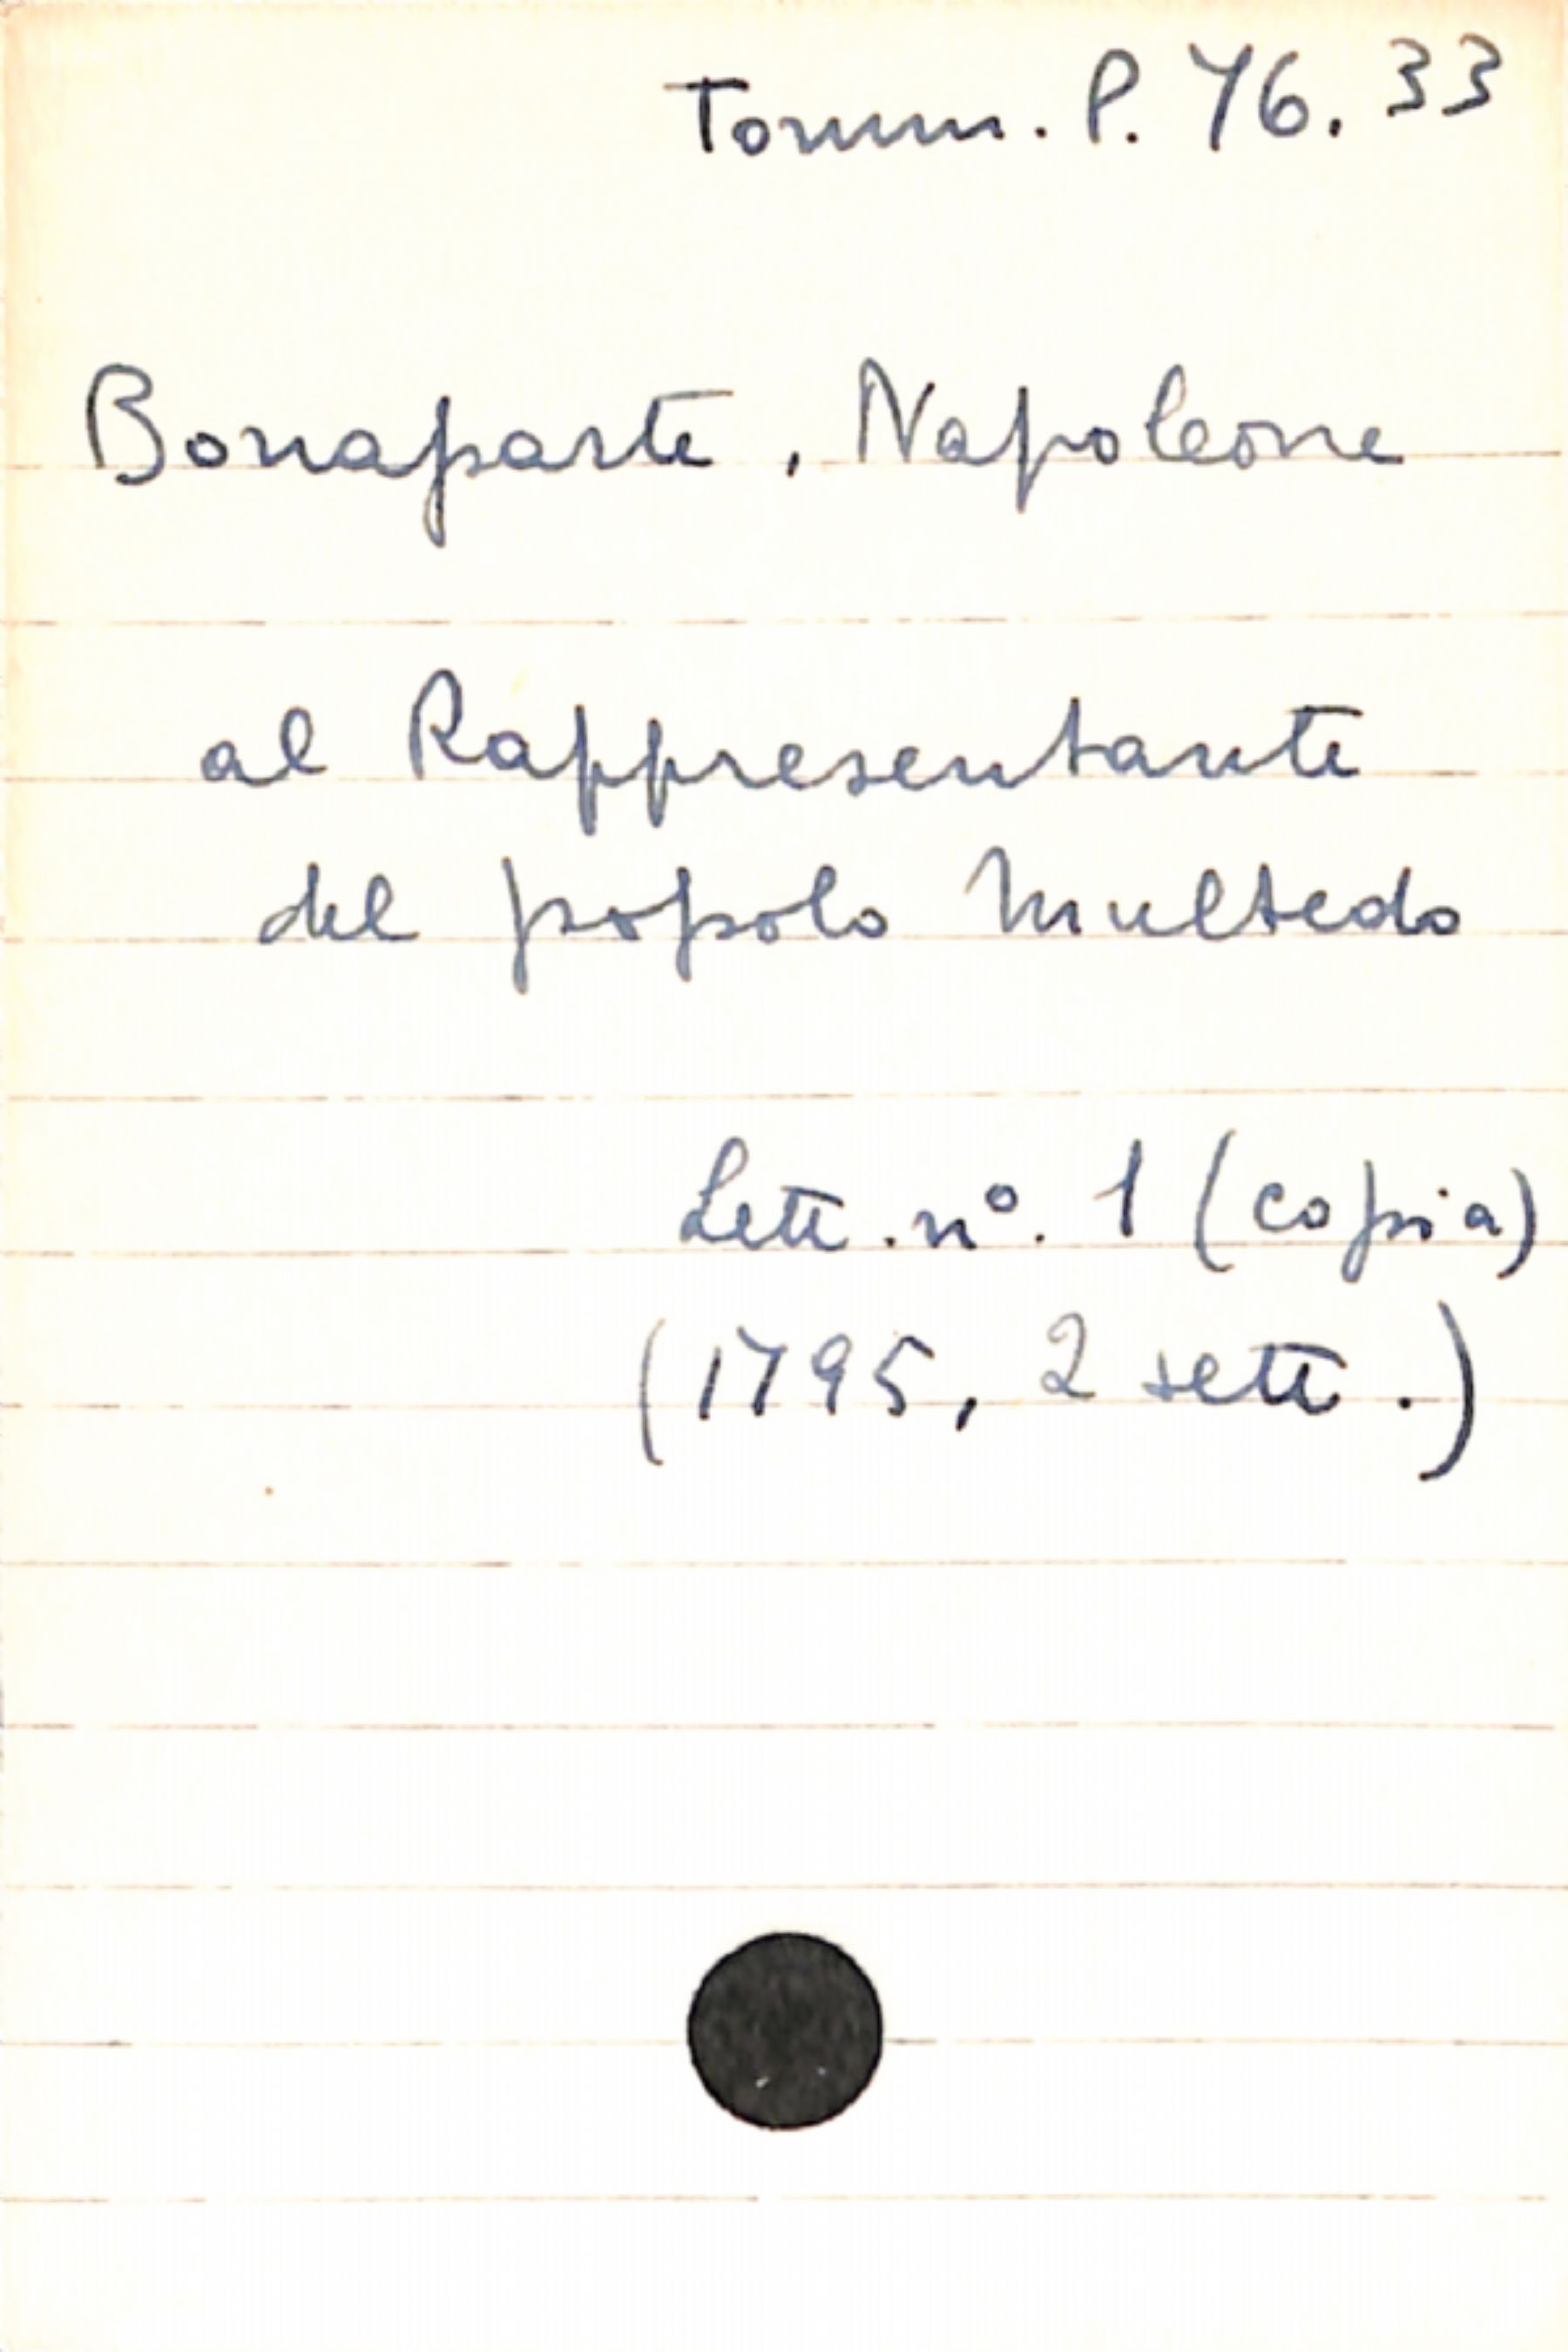 Tomm. P. 76. 33
Bonaparte, Napoleone
al Rappresentante
del popolo Multedo
Lett. nº. 1 (copia)
(1795, 2 sett.)